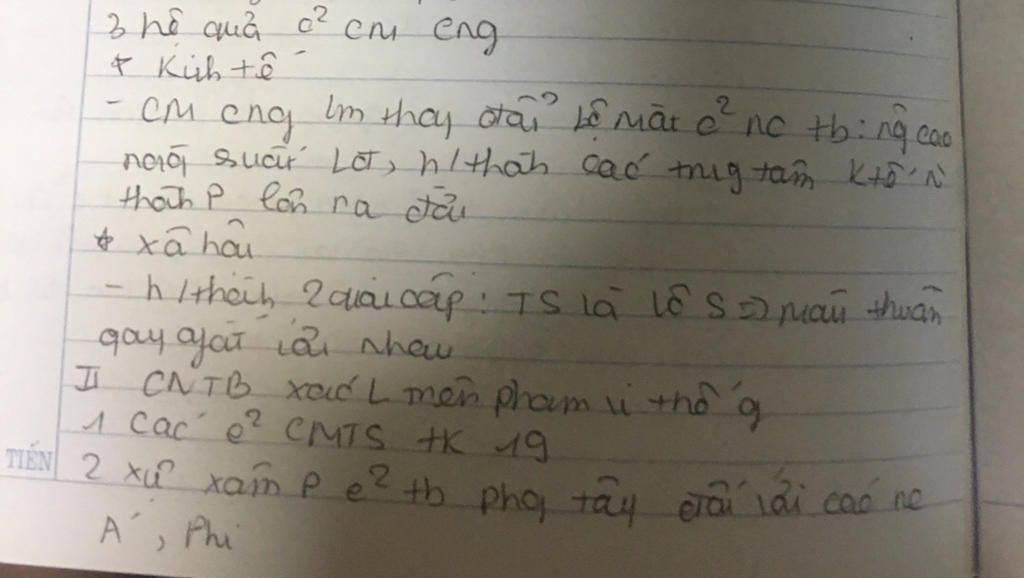 3 hệ quả c² CM CNg
* Kinh tế
- CM CNg lm thay đổi bộ mặt c² nc tb: ng cao
năng suất LĐ, h/thành các trug tâm Ktế, n
thành P lớn ra đời
* xã hội
- h/thành 2 giai cấp: TS là Vô S => mâu thuẫn
gay gắt với nhau
II CNTB xác L trên phạm vi thế g
1 Các c² CMTS TK 19
2 xự xâm P c² tb phg tây đối với các nc
TIẾN
Á, Phi